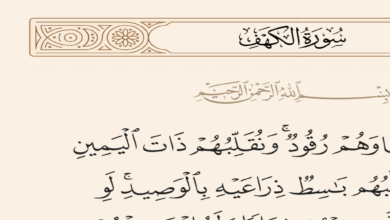 سُورَةُ الْكَهْفِ
بِسْمِ اللَّهِ الرَّحْمَٰنِ الرَّحِيمِ
وَهُمْ رُقُودٌ ۚ وَنُقَلِّبُهُمْ ذَاتَ الْيَمِينِ
بَاسِطٌ ذِرَاعَيْهِ بِالْوَصِيدِ ۚ لَوِ